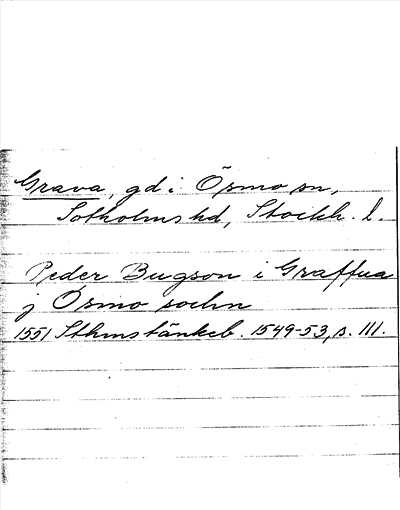 Grava, gd i Ösmo sn,
Sotholms hd, Stockh. l.
Peder Bugson i Graffua
j Ösmo sochn
1551 Sthmstänkeb. 1549-53, s. 111.